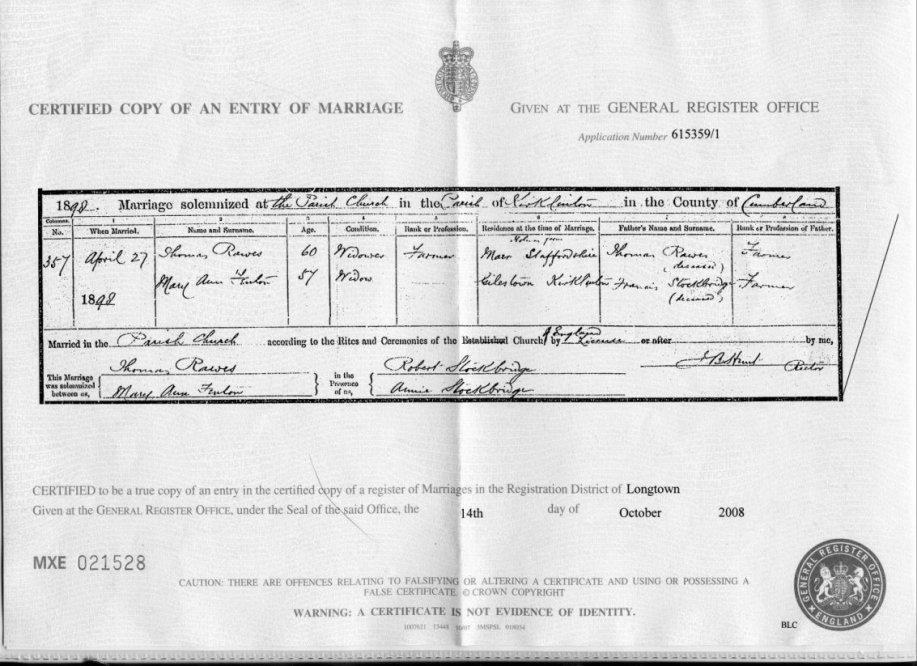 CERTIFIED COPY OF AN ENTRY OF MARRIAGE
GIVEN AT THE GENERAL REGISTER OFFICE
Application Number 615359/1
1898. Marriage solemnized at the Parish Church in the Parish of Kirklinton in the County of Cumberland
Columns. 1 2 3 4 5 6 7 8
No. When Married. Name and Surname. Age. Condition. Rank or Profession. Residence at the time of Marriage. Father's Name and Surname. Rank or Profession of Father.
357 April 27 Thomas Rawes 60 Widower Farmer Maer Staffordshire Thomas Rawes (deceased) Farmer
1898 Mary Ann Fenton 57 Widow Kirklinton Francis Stockbridge (deceased) Farmer
Married in the Parish Church according to the Rites and Ceremonies of the Established Church of England by Licence or after by me,
This Marriage was solemnized between us, Thomas Rawes Mary Ann Fenton in the Presence of us, Robert Stockbridge Annie Stockbridge J B Hunt Rector
CERTIFIED to be a true copy of an entry in the certified copy of a register of Marriages in the Registration District of Longtown
Given at the GENERAL REGISTER OFFICE, under the Seal of the said Office, the 14th day of October 2008
MXE 021528
CAUTION: THERE ARE OFFENCES RELATING TO FALSIFYING OR ALTERING A CERTIFICATE AND USING OR POSSESSING A
FALSE CERTIFICATE. © CROWN COPYRIGHT
WARNING: A CERTIFICATE IS NOT EVIDENCE OF IDENTITY.
GENERAL REGISTER OFFICE
ENGLAND
BLC